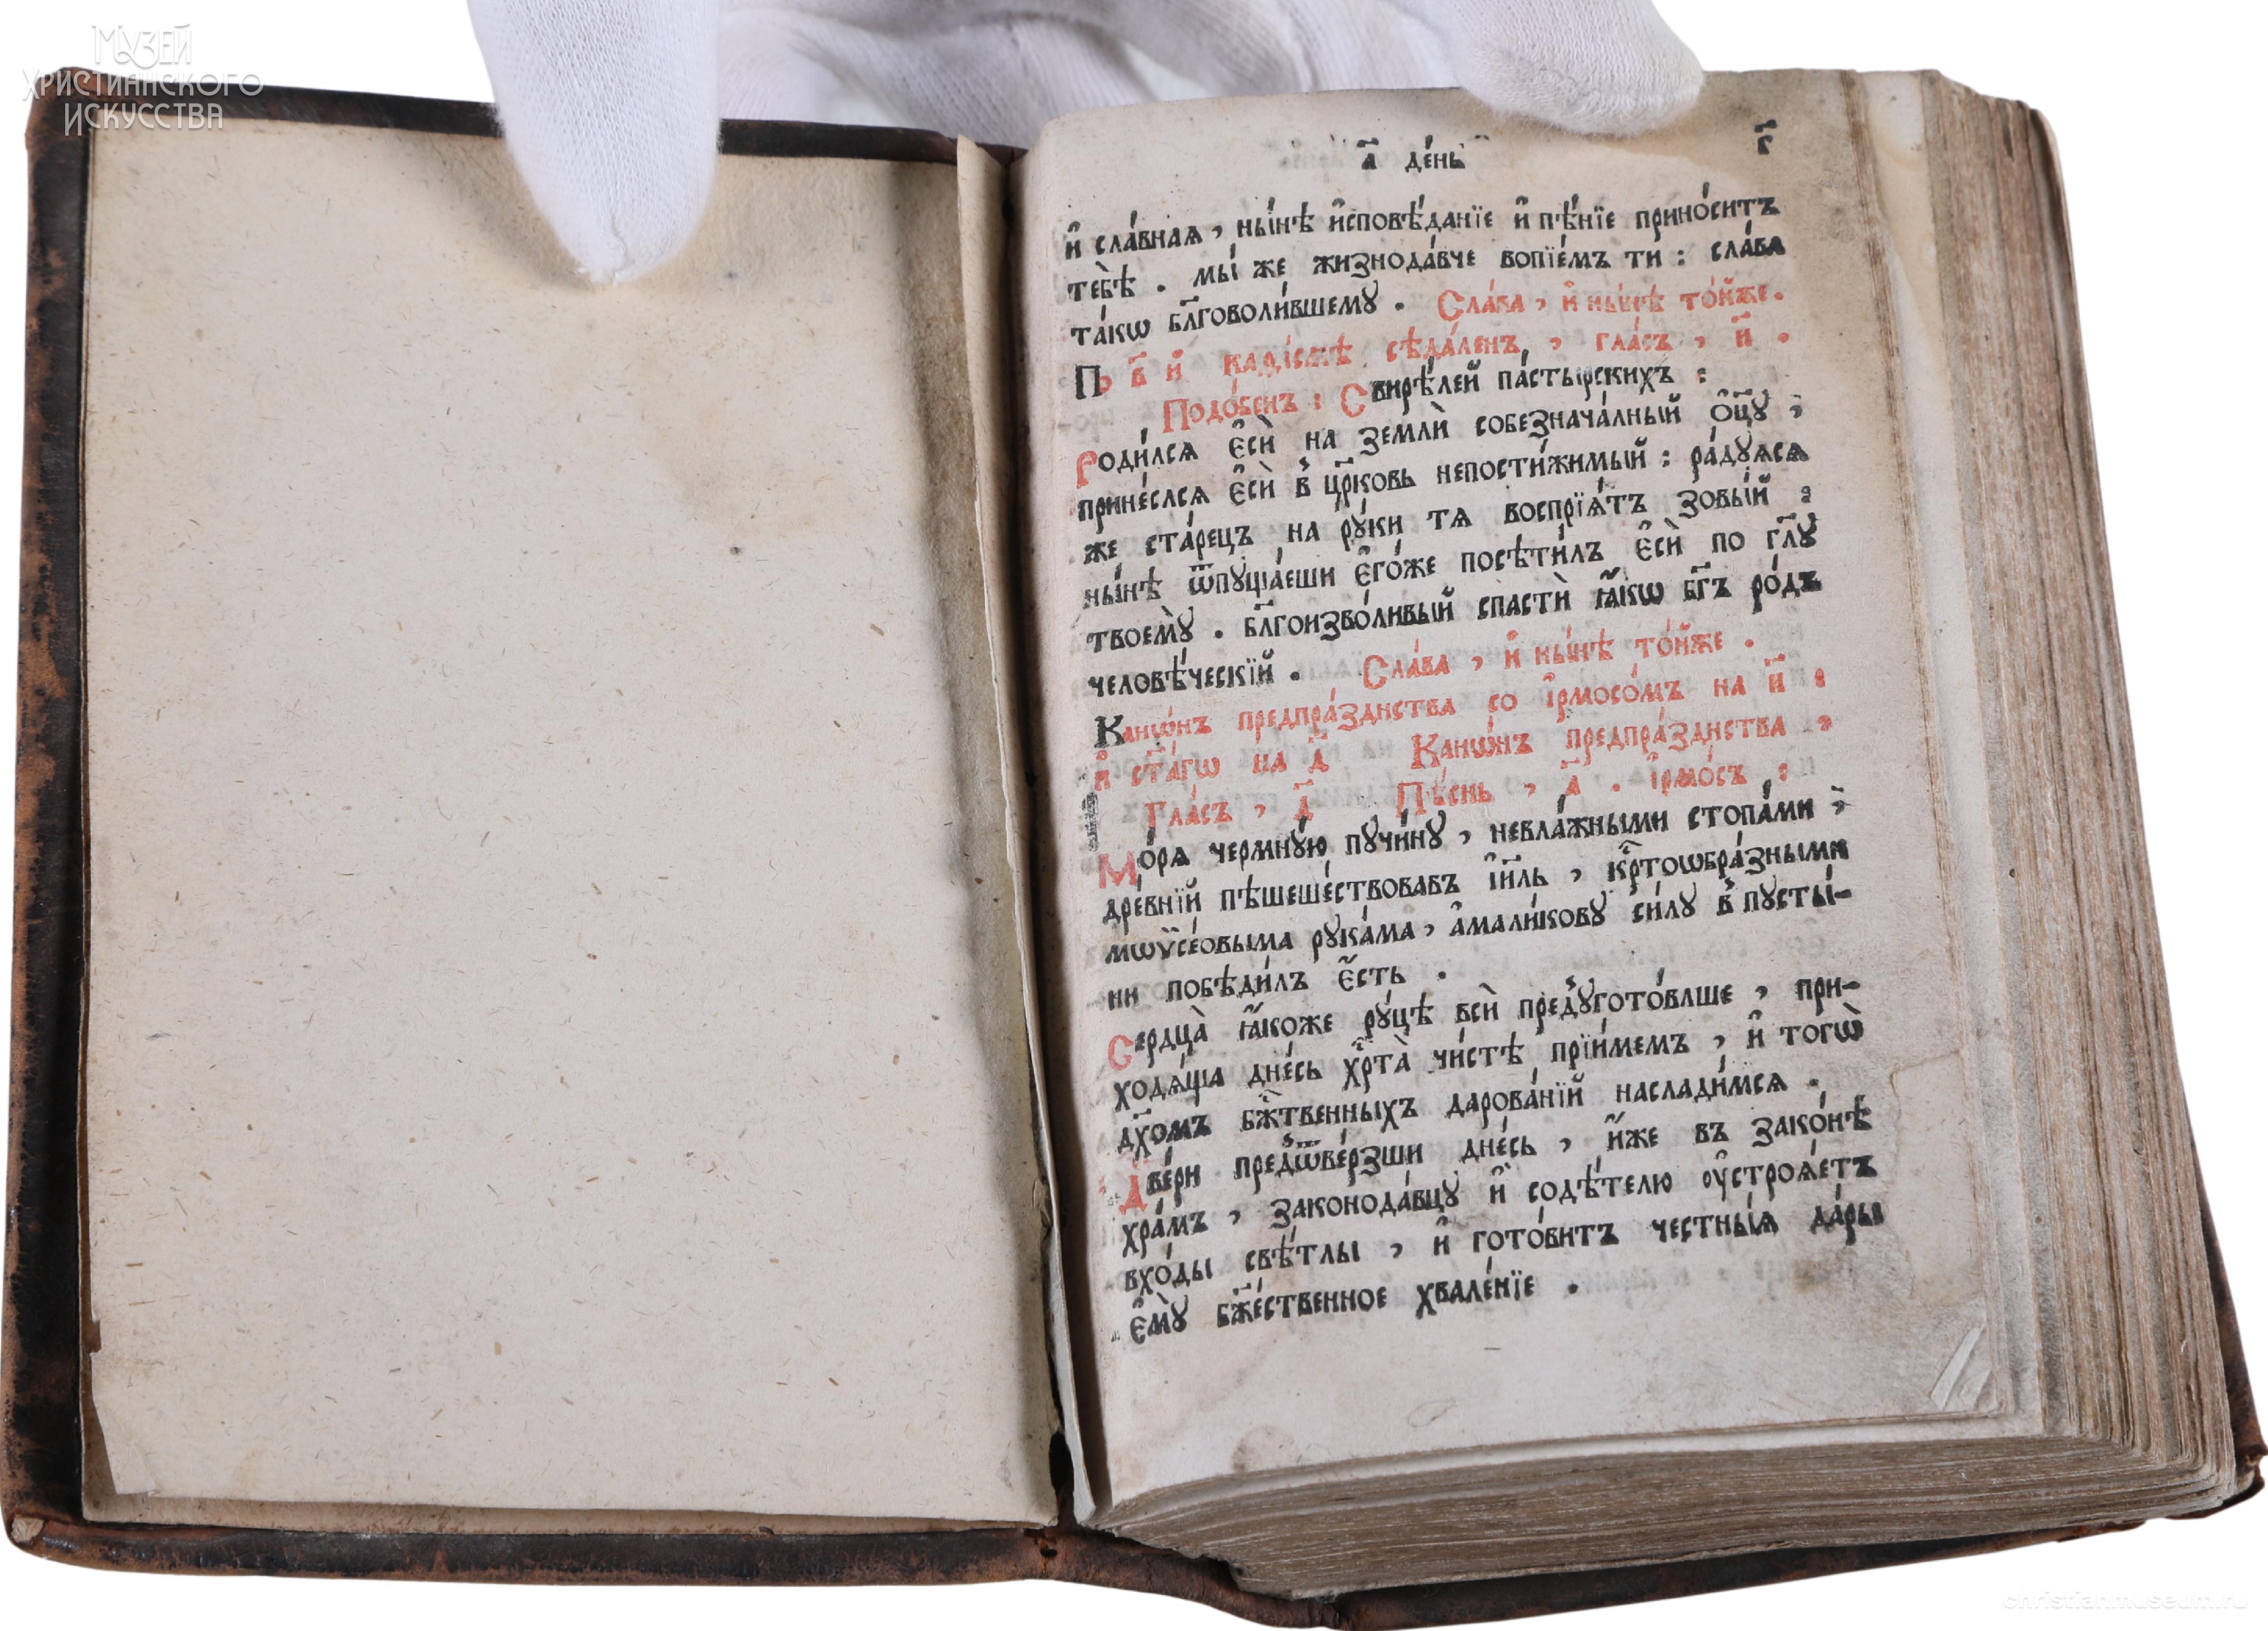 МУЗЕЙ
ХРИСТИАНСКОГО
ИСКУССТВА
а҃ де́нь г҃
и҆ сла́вная , ны́нѣ и҆сповѣ́данїе и҆ пѣ́нїе прино́ситъ
тебѣ̀ . мы́ же жизнода́вче вопїе́мъ ти : сла́ва
та́кѡ бл҃говоли́вшемꙋ . Сла́ва , и҆ ны́нѣ то́йже .
По в҃ й каѳі́смѣ сѣда́ленъ , гла́съ , и҃ .
Подо́бенъ : Свирѣ́лей па́стырскихъ :
Роди́лся є҆сѝ на землѝ собезнача́лный ѻ҆ц҃ꙋ ,
прине́слся є҆сѝ в̾ цр҃ковь непости́жимый : ра́дꙋяся
же ста́рецъ на рꙋ́ки тя воспрїя́тъ зовы́й :
ны́нѣ ѿпꙋща́еши є҆го́же посѣти́лъ є҆сѝ по гл҃ꙋ
твоемꙋ̀ . бл҃гоизво́ливый спастѝ ꙗ҆́кѡ бг҃ъ ро́дъ
человѣ́ческїй . Сла́ва , и҆ ны́нѣ то́йже .
Канѡ́нъ предпра́зднства со і҆рмосо́мъ на и҃ :
и҆ ст҃а́гѡ на д҃ Канѡ́нъ предпра́зднства ,
Гла́съ , д҃ Пѣ́снь , а҃ . і҆рмо́съ :
Мо́ря чермнꙋ́ю пꙋчи́нꙋ , невла́жными стопа́ми ,
дре́внїй пѣшеше́ствовавъ і҆и҃ль , кр҃тоѡбра́зными
мѡѷсе́овыма рꙋка́ма , а҆мали́ковꙋ си́лꙋ в̾ пꙋсты́-
ни побѣди́лъ є҆́сть .
Сердца̀ ꙗ҆́коже рꙋ́цѣ всѝ предꙋгото́влше , при-
ходя́ща дне́сь хр҃та̀ чи́стѣ прїи́мемъ , и҆ тогѡ̀
дх҃омъ бж҃твенныхъ дарова́нїй наслади́мся .
Две́ри предѿве́рзши дне́сь , и҆́же въ зако́нѣ
хра́мъ , законода́вцꙋ и҆ содѣ́телю ѹ҆строя́етъ
вхо́ды свѣ́тлы , и҆ гото́витъ честны́я да́ры
є҆мꙋ̀ бж҃е́ственное хвале́нїе .
christianmuseum.ru